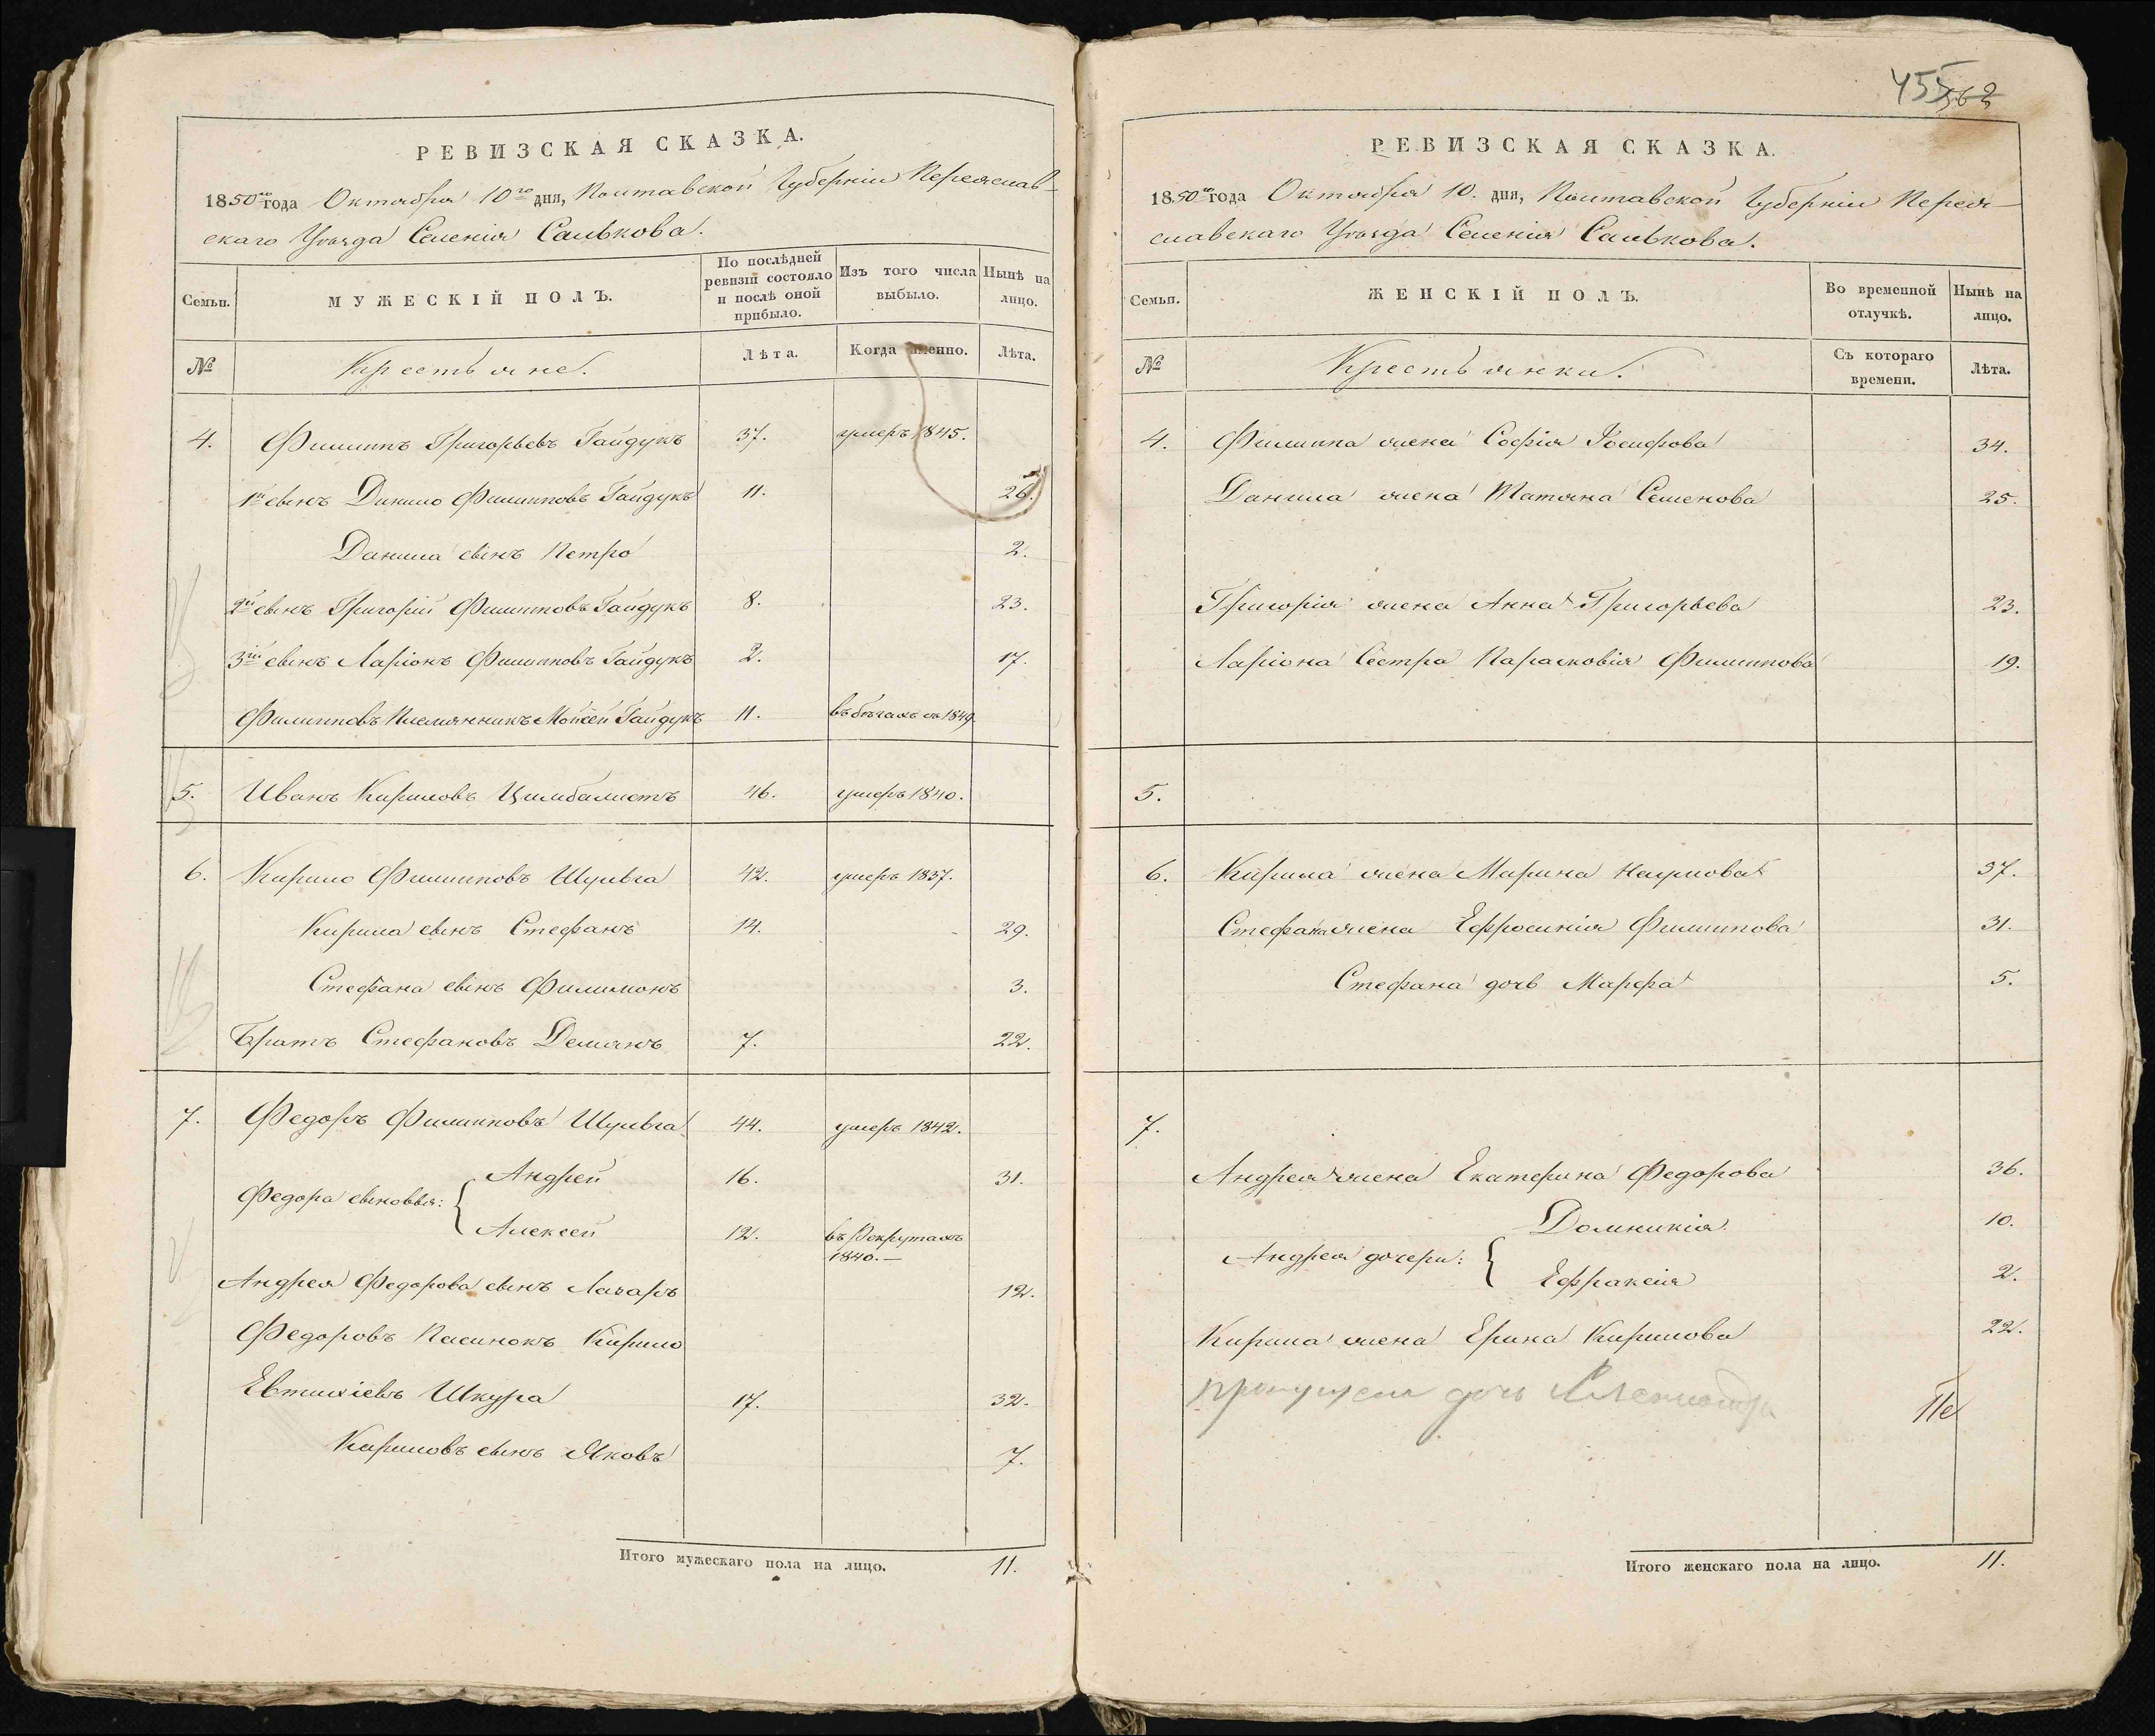 РЕВИЗСКАЯ СКАЗКА.
1850го года Октября 10го дня, Полтавской Губерніи Переяслав-
скаго Уѣзда Селенія Салькова.
Семьи.
МУЖЕСКІЙ ПОЛЪ.
По послѣдней ревизіи состояло и послѣ оной прибыло.
Изъ того числа выбыло.
Нынѣ на лицо.
№
Крестьяне.
Лѣта.
Когда именно.
Лѣта.
4. Филиппъ Григорьевъ Гайдукъ 37. умеръ 1845.
1й сынъ Данило Филипповъ Гайдукъ 11. 26.
Данила сынъ Петро 2.
2й сынъ Григорій Филипповъ Гайдукъ 8. 23.
3й сынъ Ларіонъ Филипповъ Гайдукъ 2. 17.
Филипповъ Племянникъ Мойсей Гайдукъ 11. въ бѣгахъ съ 1849.
5. Иванъ Кириловъ Цимбалистъ 46. умеръ 1840.
6. Кирило Филипповъ Шульга 42. умеръ 1837.
Кирила сынъ Стефанъ 14. 29.
Стефана сынъ Филимонъ 3.
Братъ Стефановъ Демянъ 7. 22.
7. Федоръ Филипповъ Шульга 44. умеръ 1842.
Федора сыновья: Андрей 16. 31.
Алексей 12. въ Рекрутахъ
1840.—
Андрея Федорова сынъ Лазарь 12.
Федоровъ Пасинокъ Кирило
Евтихіевъ Шкура 17. 32.
Кириловъ сынъ Яковъ 7.
Итого мужескаго пола на лицо. 11.
455
562
РЕВИЗСКАЯ СКАЗКА.
1850го года Октября 10. дня, Полтавской Губерніи Перея-
славскаго Уѣзда Селенія Салькова.
Семьи.
ЖЕНСКІЙ ПОЛЪ.
Во временной отлучкѣ.
Нынѣ на лицо.
№
Крестьянки.
Съ котораго времени.
Лѣта.
4. Филиппа жена Софія Іосифова 34.
Данила жена Татяна Семенова 25.
Григорія жена Анна Григорьева 23.
Ларіона Сестра Парасковія Филиппова 19.
5.
6. Кирила жена Марина Наумова 37.
Стефана жена Ефросинія Филиппова 31.
Стефана дочь Марфа 5.
7.
Андрея жена Екатерина Федорова 36.
Домникія 10.
Андрея дочери:
Ефраксія 2.
Кирила жена Ерина Кирилова 22.
пропущена дочь Александра
Итого женскаго пола на лицо. 11.